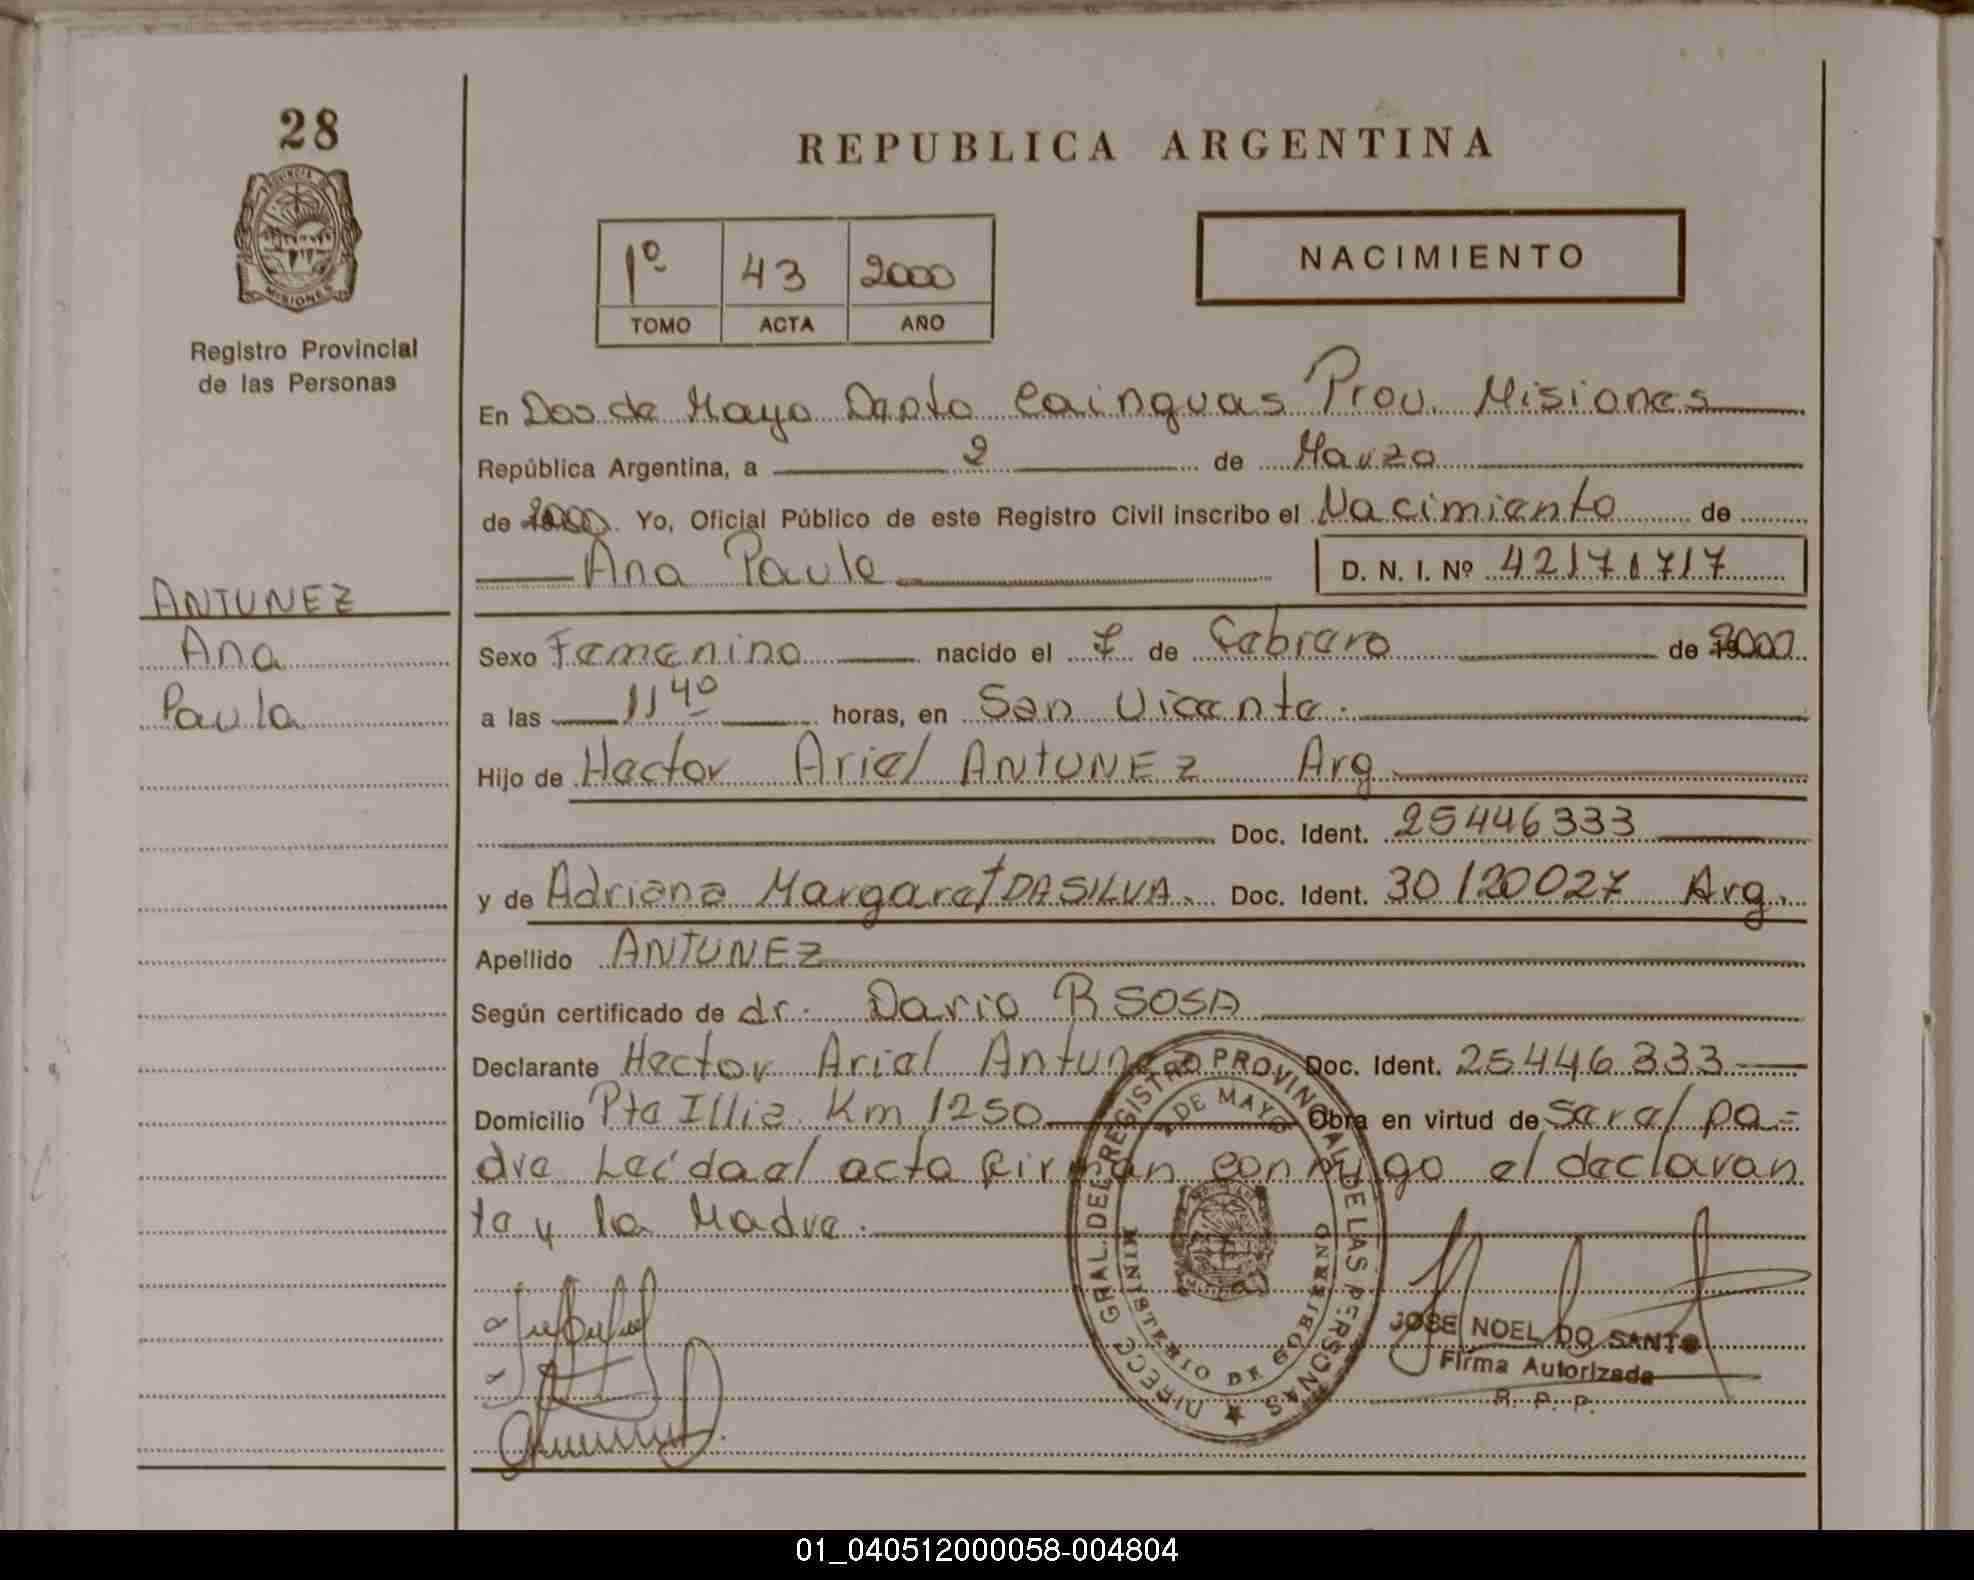 28
PROVINCIA DE
MISIONES
Registro Provincial
de las Personas
ANTUNEZ
Ana
Paula
REPUBLICA ARGENTINA
1º 43 2000
TOMO ACTA AÑO
NACIMIENTO
En Dos de Mayo Dapto Cainguas Prov. Misiones
República Argentina, a 2 de Marzo
de 2000. Yo, Oficial Público de este Registro Civil inscribo el Nacimiento de
Ana Paula D. N. I. Nº 42171717
Sexo Femenino nacido el 7 de Febrero de 2000
a las 11 40 horas, en San Vicente.
Hijo de Hector Ariel ANTUNEZ Arg
Doc. Ident. 25446333
y de Adriana Margaret DA SILVA. Doc. Ident. 30120027 Arg.
Apellido ANTUNEZ
Según certificado de dr. Dario R SOSA
Declarante Hector Ariel Antunez Doc. Ident. 25446333
Domicilio Pte Illia Km 1250 Obra en virtud de ser el pa=
dre Leída el acta firman conmigo el declaran
te y la Madre.
DIRECC GRAL. DEL REGISTRO PROVINCIAL DE LAS PERSONAS
2 DE MAYO
MINISTERIO DE GOBIERNO
JOSE NOEL DO SANTO
Firma Autorizada
R. P. P.
01_040512000058-004804